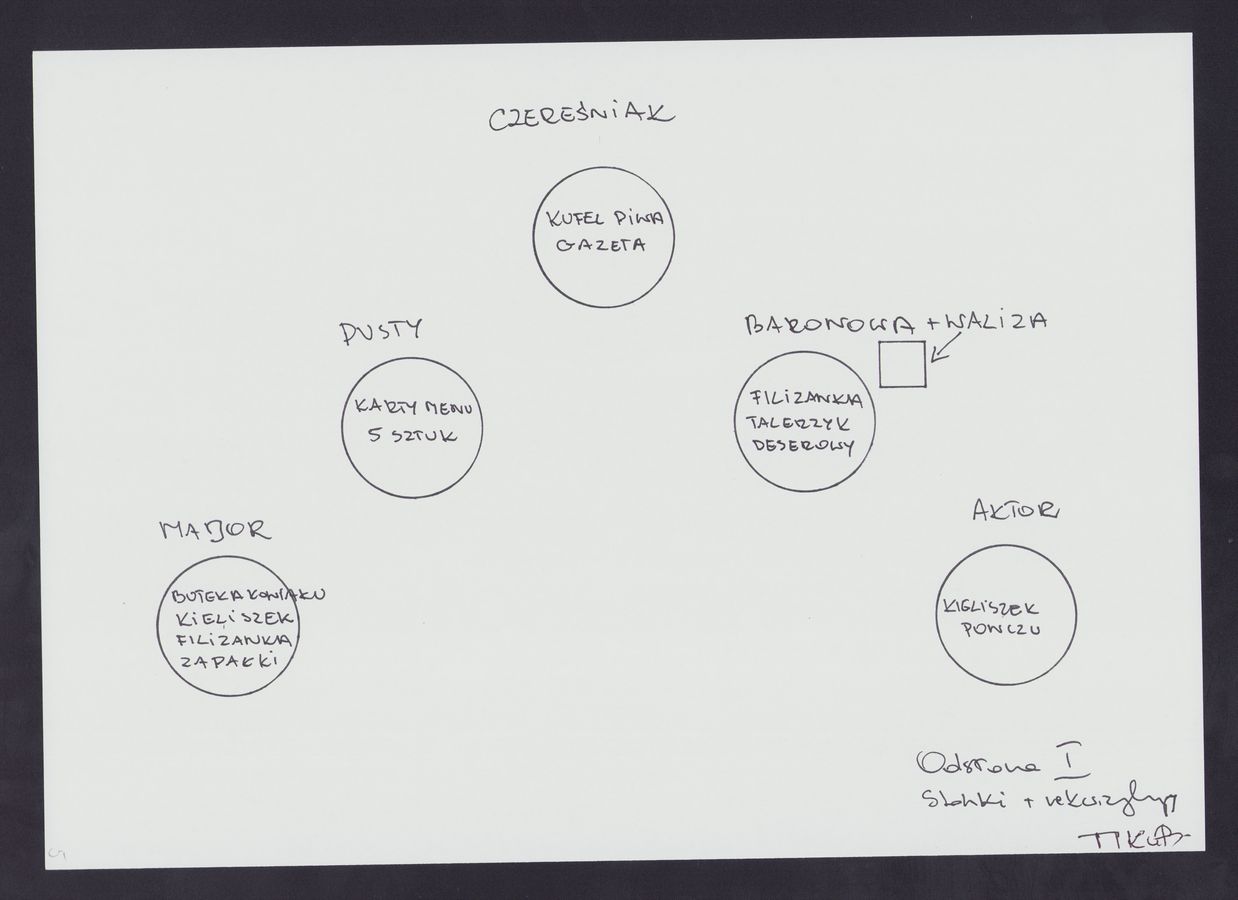 CZEREŚNIAK
KUFEL PIWA
GAZETA
PUSTY
KARTY MENU
5 SZTUK
BARONOWA + WALIZA
FILIŻANKA
TALERZYK
DESEROWY
MAJOR
BUTEKA KONIAKU
KIELISZEK
FILIŻANKA
ZAPAŁKI
AKTOR
KIELISZEK
PONCZU
Odsłona I
Stoliki + rekwizyty